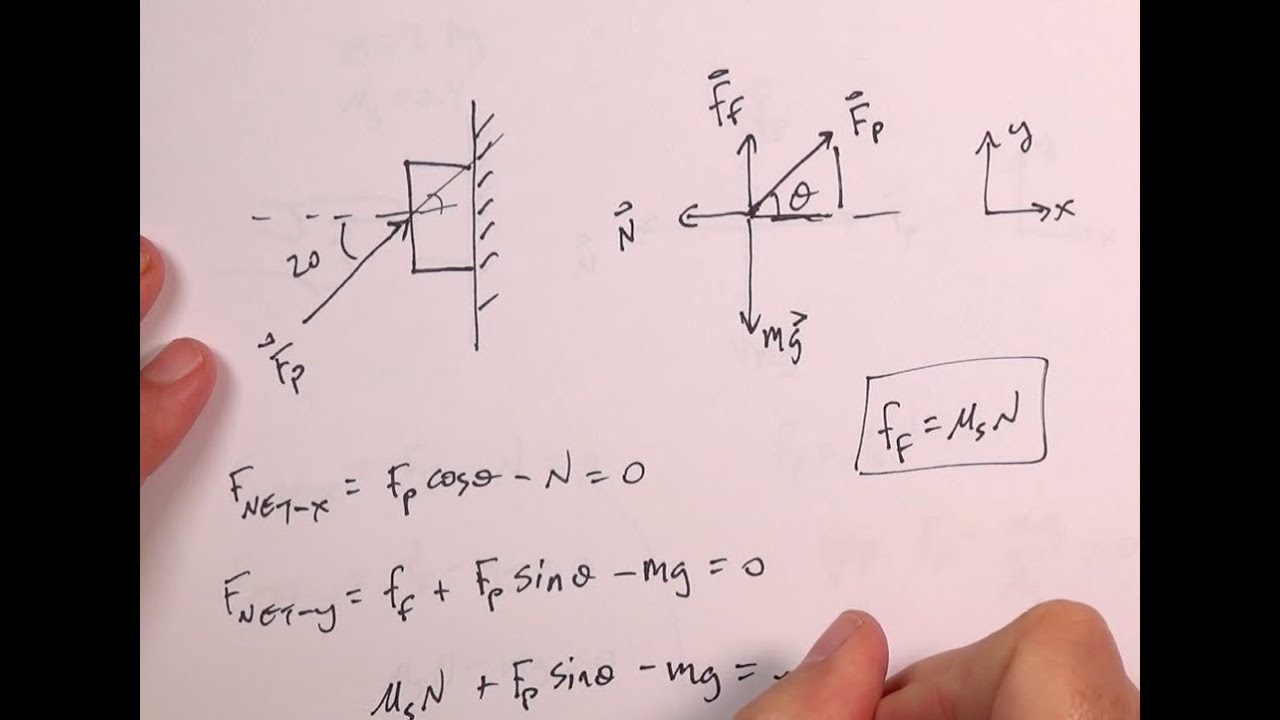 20
F⃗p
F⃗f
F⃗p
θ
N⃗
mg⃗
y
x
f_F = μ_s N
F_NET-x = F_p cosθ - N = 0
F_NET-y = f_f + F_p sinθ - mg = 0
μ_s N + F_p sinθ - mg =